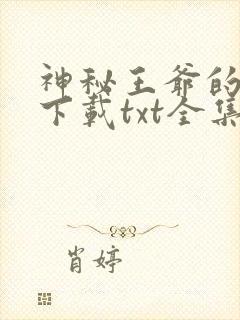 神秘王爷的
下载txt全集
肖婷